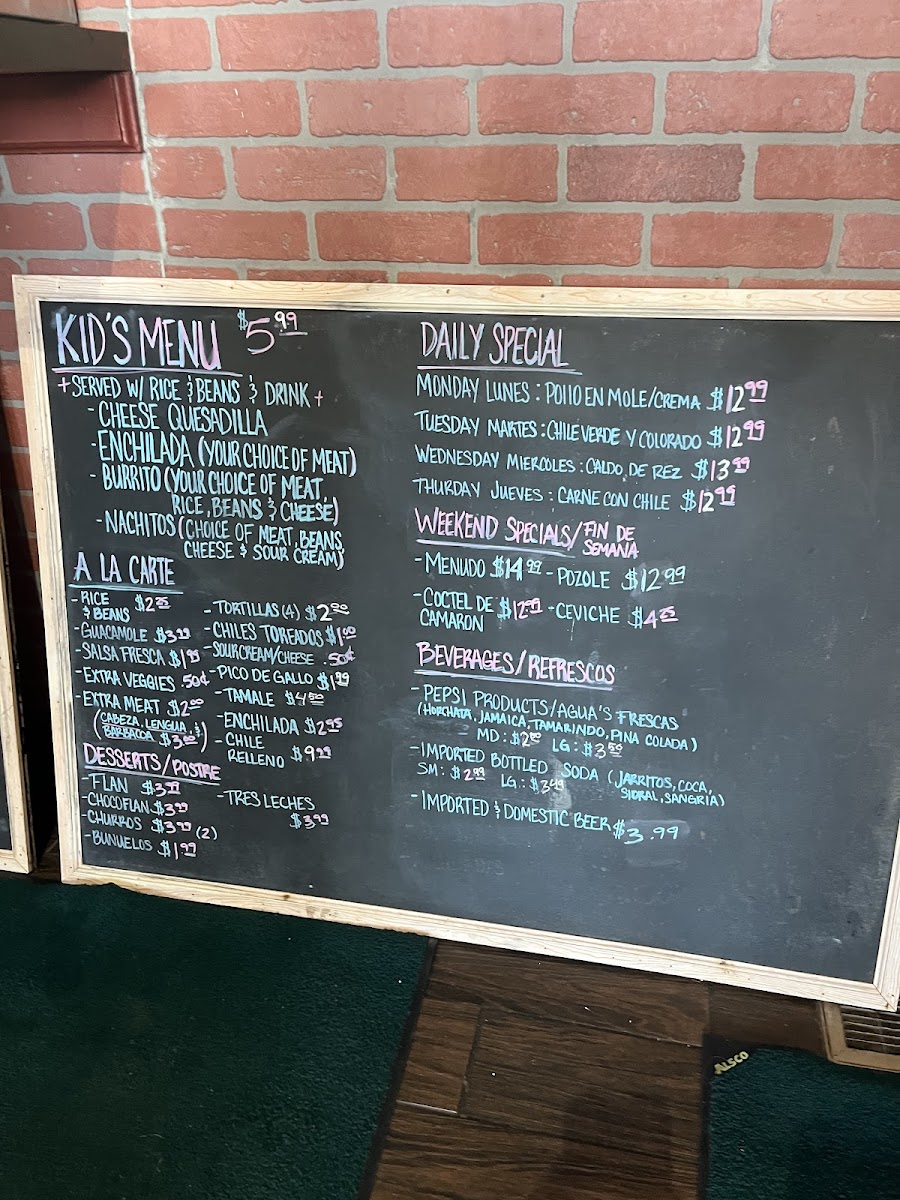 KID'S MENU $5.99
+ SERVED W/ RICE & BEANS & DRINK +
- CHEESE QUESADILLA
- ENCHILADA (YOUR CHOICE OF MEAT)
- BURRITO (YOUR CHOICE OF MEAT,
RICE, BEANS & CHEESE)
- NACHITOS (CHOICE OF MEAT, BEANS,
CHEESE & SOUR CREAM)
A LA CARTE
- RICE
& BEANS $2.25
- GUACAMOLE $3.99
- SALSA FRESCA $1.95
- EXTRA VEGGIES .50¢
- EXTRA MEAT $2.00
(CABEZA, LENGUA, &
BARBACOA $3.00)
- TORTILLAS (4) $2.00
- CHILES TOREADOS $1.00
- SOURCREAM/CHEESE .50¢
- PICO DE GALLO $1.99
- TAMALE $4.50
- ENCHILADA $2.95
- CHILE
RELLENO $9.25
DESSERTS/POSTRE
- FLAN $3.99
- CHOCOFLAN $3.99
- CHURROS $3.99 (2)
- BUNUELOS $1.99
- TRES LECHES
$3.99
DAILY SPECIAL
MONDAY LUNES : POllO EN MOLE/CREMA $12.99
TUESDAY MARTES : CHILE VERDE Y COLORADO $12.99
WEDNESDAY MIERCOLES : CALDO DE REZ $13.99
THURDAY JUEVES : CARNE CON CHILE $12.99
WEEKEND SPECIALS/FIN DE
SEMANA
- MENUDO $14.99 - POZOLE $12.99
- COCTEL DE
CAMARON $12.99 - CEVICHE $4.25
BEVERAGES/REFRESCOS
- PEPSI PRODUCTS/AGUA'S FRESCAS
(HORCHATA, JAMAICA, TAMARINDO, PINA COLADA)
MD: $2.50 LG: $3.50
- IMPORTED BOTTLED SODA (JARRITOS, COCA,
SIDRAL, SANGRIA)
SM: $2.99 LG: $3.49
- IMPORTED & DOMESTIC BEER $3.99
ALSCO